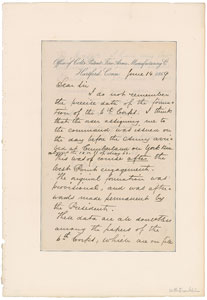 Office of Colt's Patent Fire Arms Manufacturing Co
Hartford, Conn. June 14 1889
Dear Sir
I do not remember
the precise date of the formation
of the 6th Corps. I think
that the order assigning me to
the command was issued on
the day before the Army arrived
at Cumberland on York River
This was of course after the
West Point engagement.
The original formation was
provisional, and was afterwards
made permanent by
the President.
These data are all somewhere
among the papers of the
6th Corps, which are on file